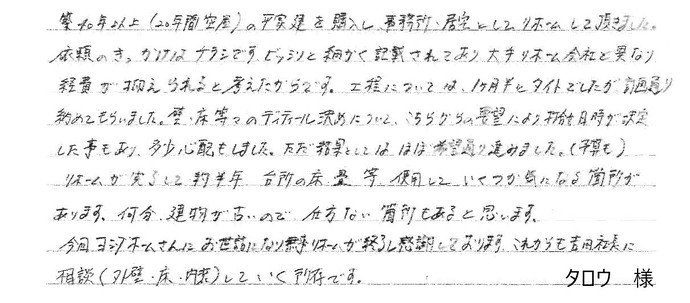 築40年以上(20年間空屋)の平家建を購入し、事務所・居室としてリホームして頂きました。
依頼のきっかけはチラシです。ビッシリと細かく記載されており 大手リホーム会社と異なり
経費が抑えられると考えたからです。工程については、1ヶ月半とタイトでしたが計画通り
納めてもらいました。壁・床等々のディティール決めについて、こちらからの要望により 日時が決定
した事もあり、多少心配もしました。ただ結果としては ほぼ希望通り進みました。(予算も)
リホームが完了して約半年 台所の床、畳 等、使用して いくつか気になる箇所が
あります。何分、建物が古いので 仕方ない箇所もあると思います。
今回ヨシダホームさんに お世話になり無事リホームが終了し感謝しております。これからも吉田社長に
相談(外壁・床・内装)していく所存です。
タロウ 様